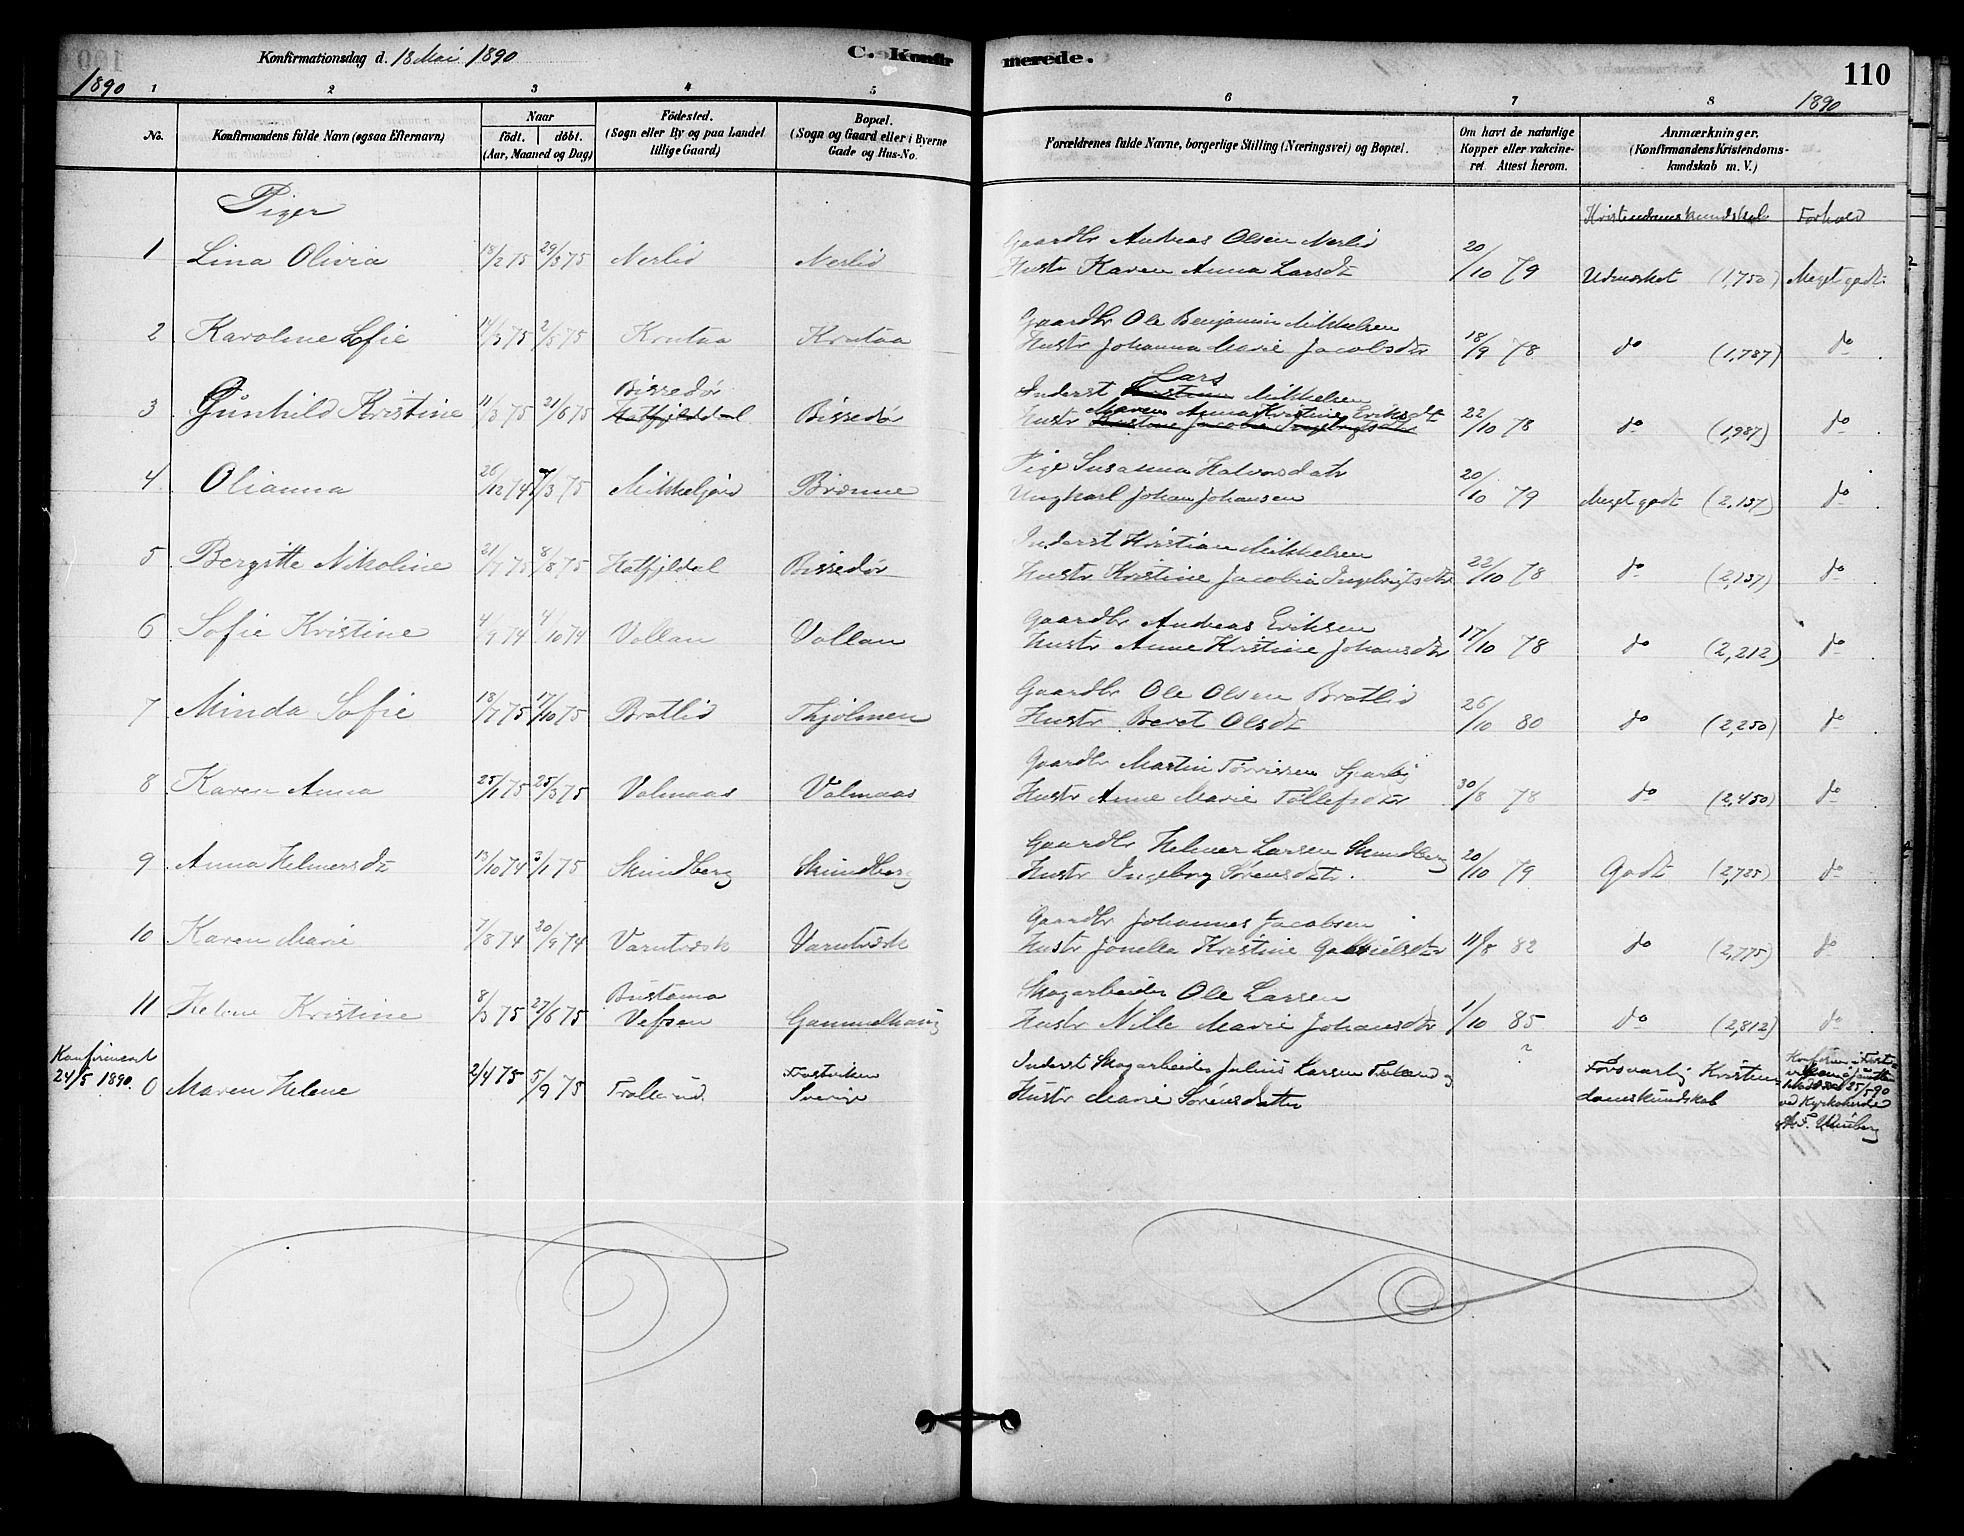 Konfirmationsdag d. 18 Mai 1890
C. Konfirmerede.
110
1890
1890
1 2 3 4 5 6 7 8
No.
Konfirmandens fulde Navn (ogsaa Efternavn)
Naar
födt. döbt.
(Aar, Maaned og Dag)
Födested.
(Sogn eller By og paa Landet
lillige Gaard)
Bopæl.
(Sogn og Gaard eller i Byerne
Gade og Hus-No.
Forældrenes fulde Navne, borgerlige Stilling (Næringsvei) og Bopæl.
Om havt de naturlige
Kopper eller vakcine-
ret. Attest herom.
Anmærkninger.
(Konfirmandens Kristendoms-
kundskab m. V.)
Piger
Kristendomskundskab Forhold
Gaardbr Andreas Olsen Nerlid
1 Lina Olivia 18/2 75 29/3 75 Nerlid Nerlid Hustr Karen Anna Larsdt 20/10 79 Udmerket (1,750) Meget godt
Gaardbr Ole Benjamin Mikkelsen
2 Karoline Sofie 17/3 75 2/5 75 Krutaa Krutaa Hustr Johanna Marie Jacobsdtr 18/9 78 do (1,787) do
Bissedør Inderst Lars Mikkelsen
3 Gunhild Kristine 11/3 75 21/6 75 Hatfjelddal Bissedør Hustr Maren Anna Kristine Eriksdt 22/10 78 do (1,987) do
Kristine Jacobia Ingebrigtsdtr
Pige Susanna Halvorsdatr
4 Olianna 26/12 74 7/3 75 Mikkeljord Brænne Ungkarl Johan Johansen 20/10 79 Meget godt (2,137) do
Inderst Kristian Mikkelsen
5 Bergitte Nikoline 21/7 75 8/8 75 Hatfjeldal Bissedør Hustr Kristine Jacobia Ingebrigtsdtr 22/10 78 do (2,137) do
Gaardbr Andreas Eriksen
6 Sofie Kristine 4/9 74 4/10 74 Vollan Vollan Hustr Anne Kristine Johansdtr 17/10 78 do (2,212) do
Gaardbr Ole Olsen Bratlid
7 Minda Sofie 18/7 75 17/10 75 Bratlid Thjolmen Hustr Beret Olsdt 26/10 80 do (2,250) do
Gaardbr Martin Torrissen
8 Karen Anna 25/1 75 25/3 75 Volmaas Volmaas Hustr Anne Marie Tollefsdtr 30/8 78 do (2,450) do
Gaardbr Helmer Larsen Skundberg
9 Anna Helmersdt 13/10 74 3/1 75 Skundberg Skundberg Hustr Ingeborg Sørensdatr. 20/10 79 Godt (2,725) do
Gaardbr Johannes Jacobsen
10 Karen Marie 7/8 74 20/9 74 Varntræsk Varntræsk Hustr Jonella Kristine Gabrielsdtr 11/8 82 do (2,775) do
Bustamo Skogarbeider Ole Larsen
11 Helene Kristine 8/3 75 27/6 75 Vefsen Gammelhaug Hustr Nille Marie Johansdtr 1/10 85 do (2,812) do
Konfirmeret
24/5 1890. 0 Maren Helene 2/4 75 5/9 75 Sverige
Inderst Skogarbeider Julius Larsen
Hustr Marie Sørensdatter ?
Forsvarlig Kristendomskundskab
25/5 90
ved Kyrkoherde